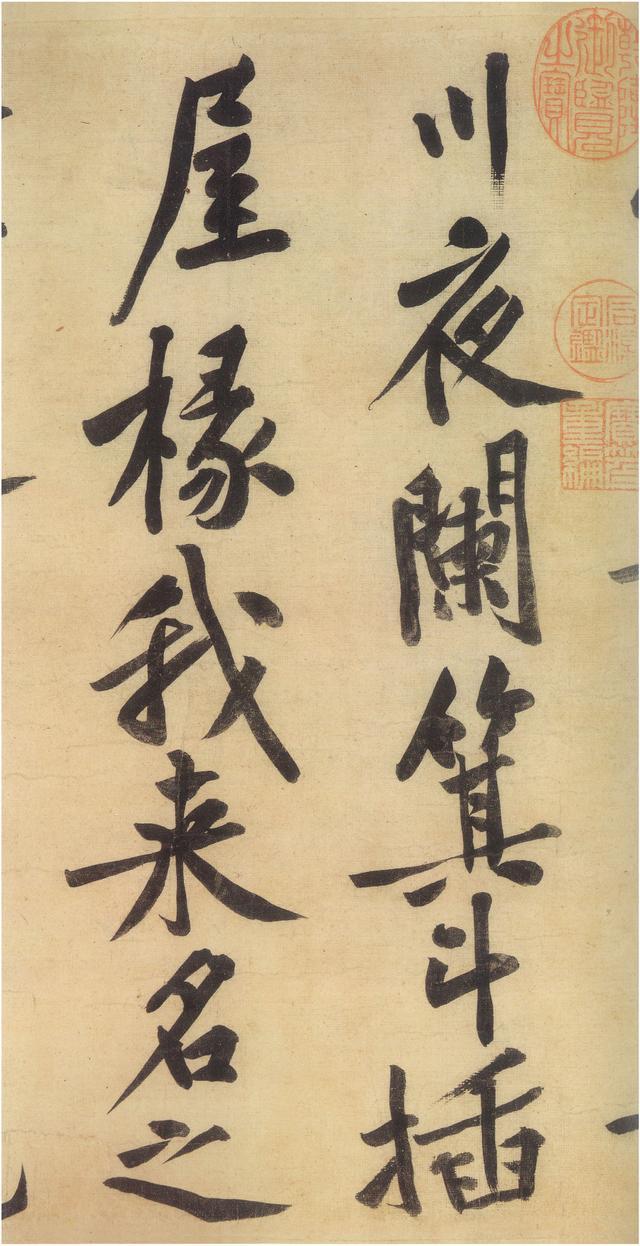 川夜闌箕斗插
屋椽我来名之
乾隆御覽之寶
石渠定鑑
寶笈重編